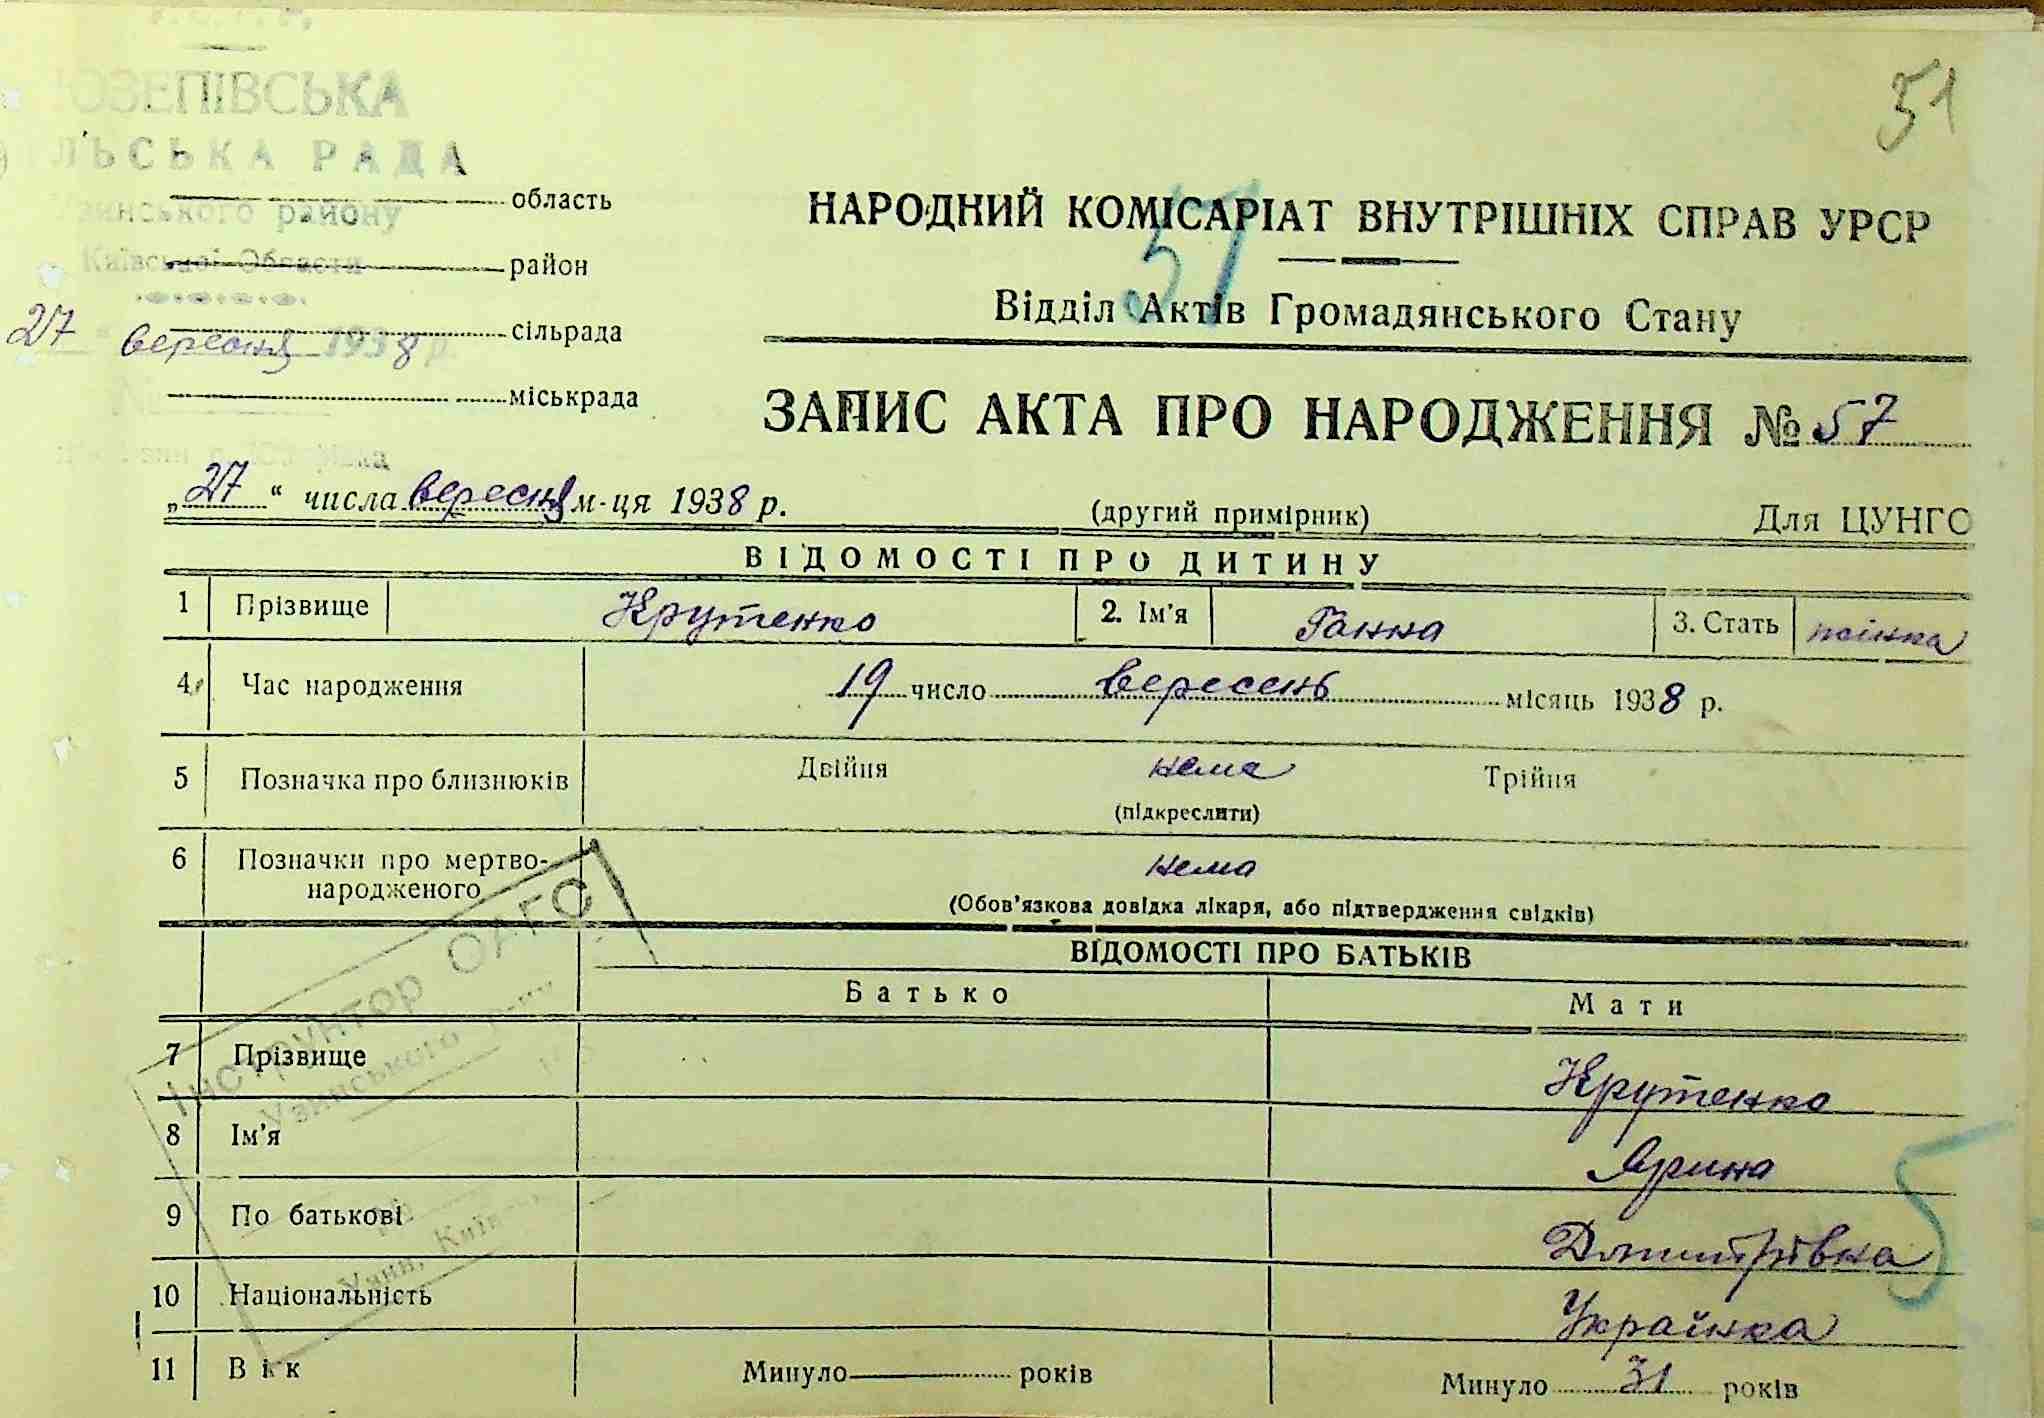 51
ЮЗЕПІВСЬКА
ЛЬСЬКА РАДА
Узинського району
Київської Области
область
район
сільрада
міськрада
27 вересня 1938 р.
НАРОДНИЙ КОМІСАРІАТ ВНУТРІШНІХ СПРАВ УРСР
57
Відділ Актів Громадянського Стану
ЗАПИС АКТА ПРО НАРОДЖЕННЯ № 57
„27“ числа вересня м-ця 1938 р.
(другий примірник)
Для ЦУНГО
ВІДОМОСТІ ПРО ДИТИНУ
1 Прізвище Крутенко 2. Ім'я Ганна 3. Стать жінка
4 Час народження 19 число вересень місяць 1938 р.
5 Позначка про близнюків Двійня нема Трійня
(підкреслити)
6 Позначки про мертво-
народженого нема
(Обов'язкова довідка лікаря, або підтвердження свідків)
ВІДОМОСТІ ПРО БАТЬКІВ
Батько Мати
7 Прізвище Крутенко
8 Ім'я Ярина
9 По батькові Дмитрівна
10 Національність Українка
11 Вік Минуло років Минуло 31 років
Інструктор ОАГС
Узинського
Узин, Київ
5